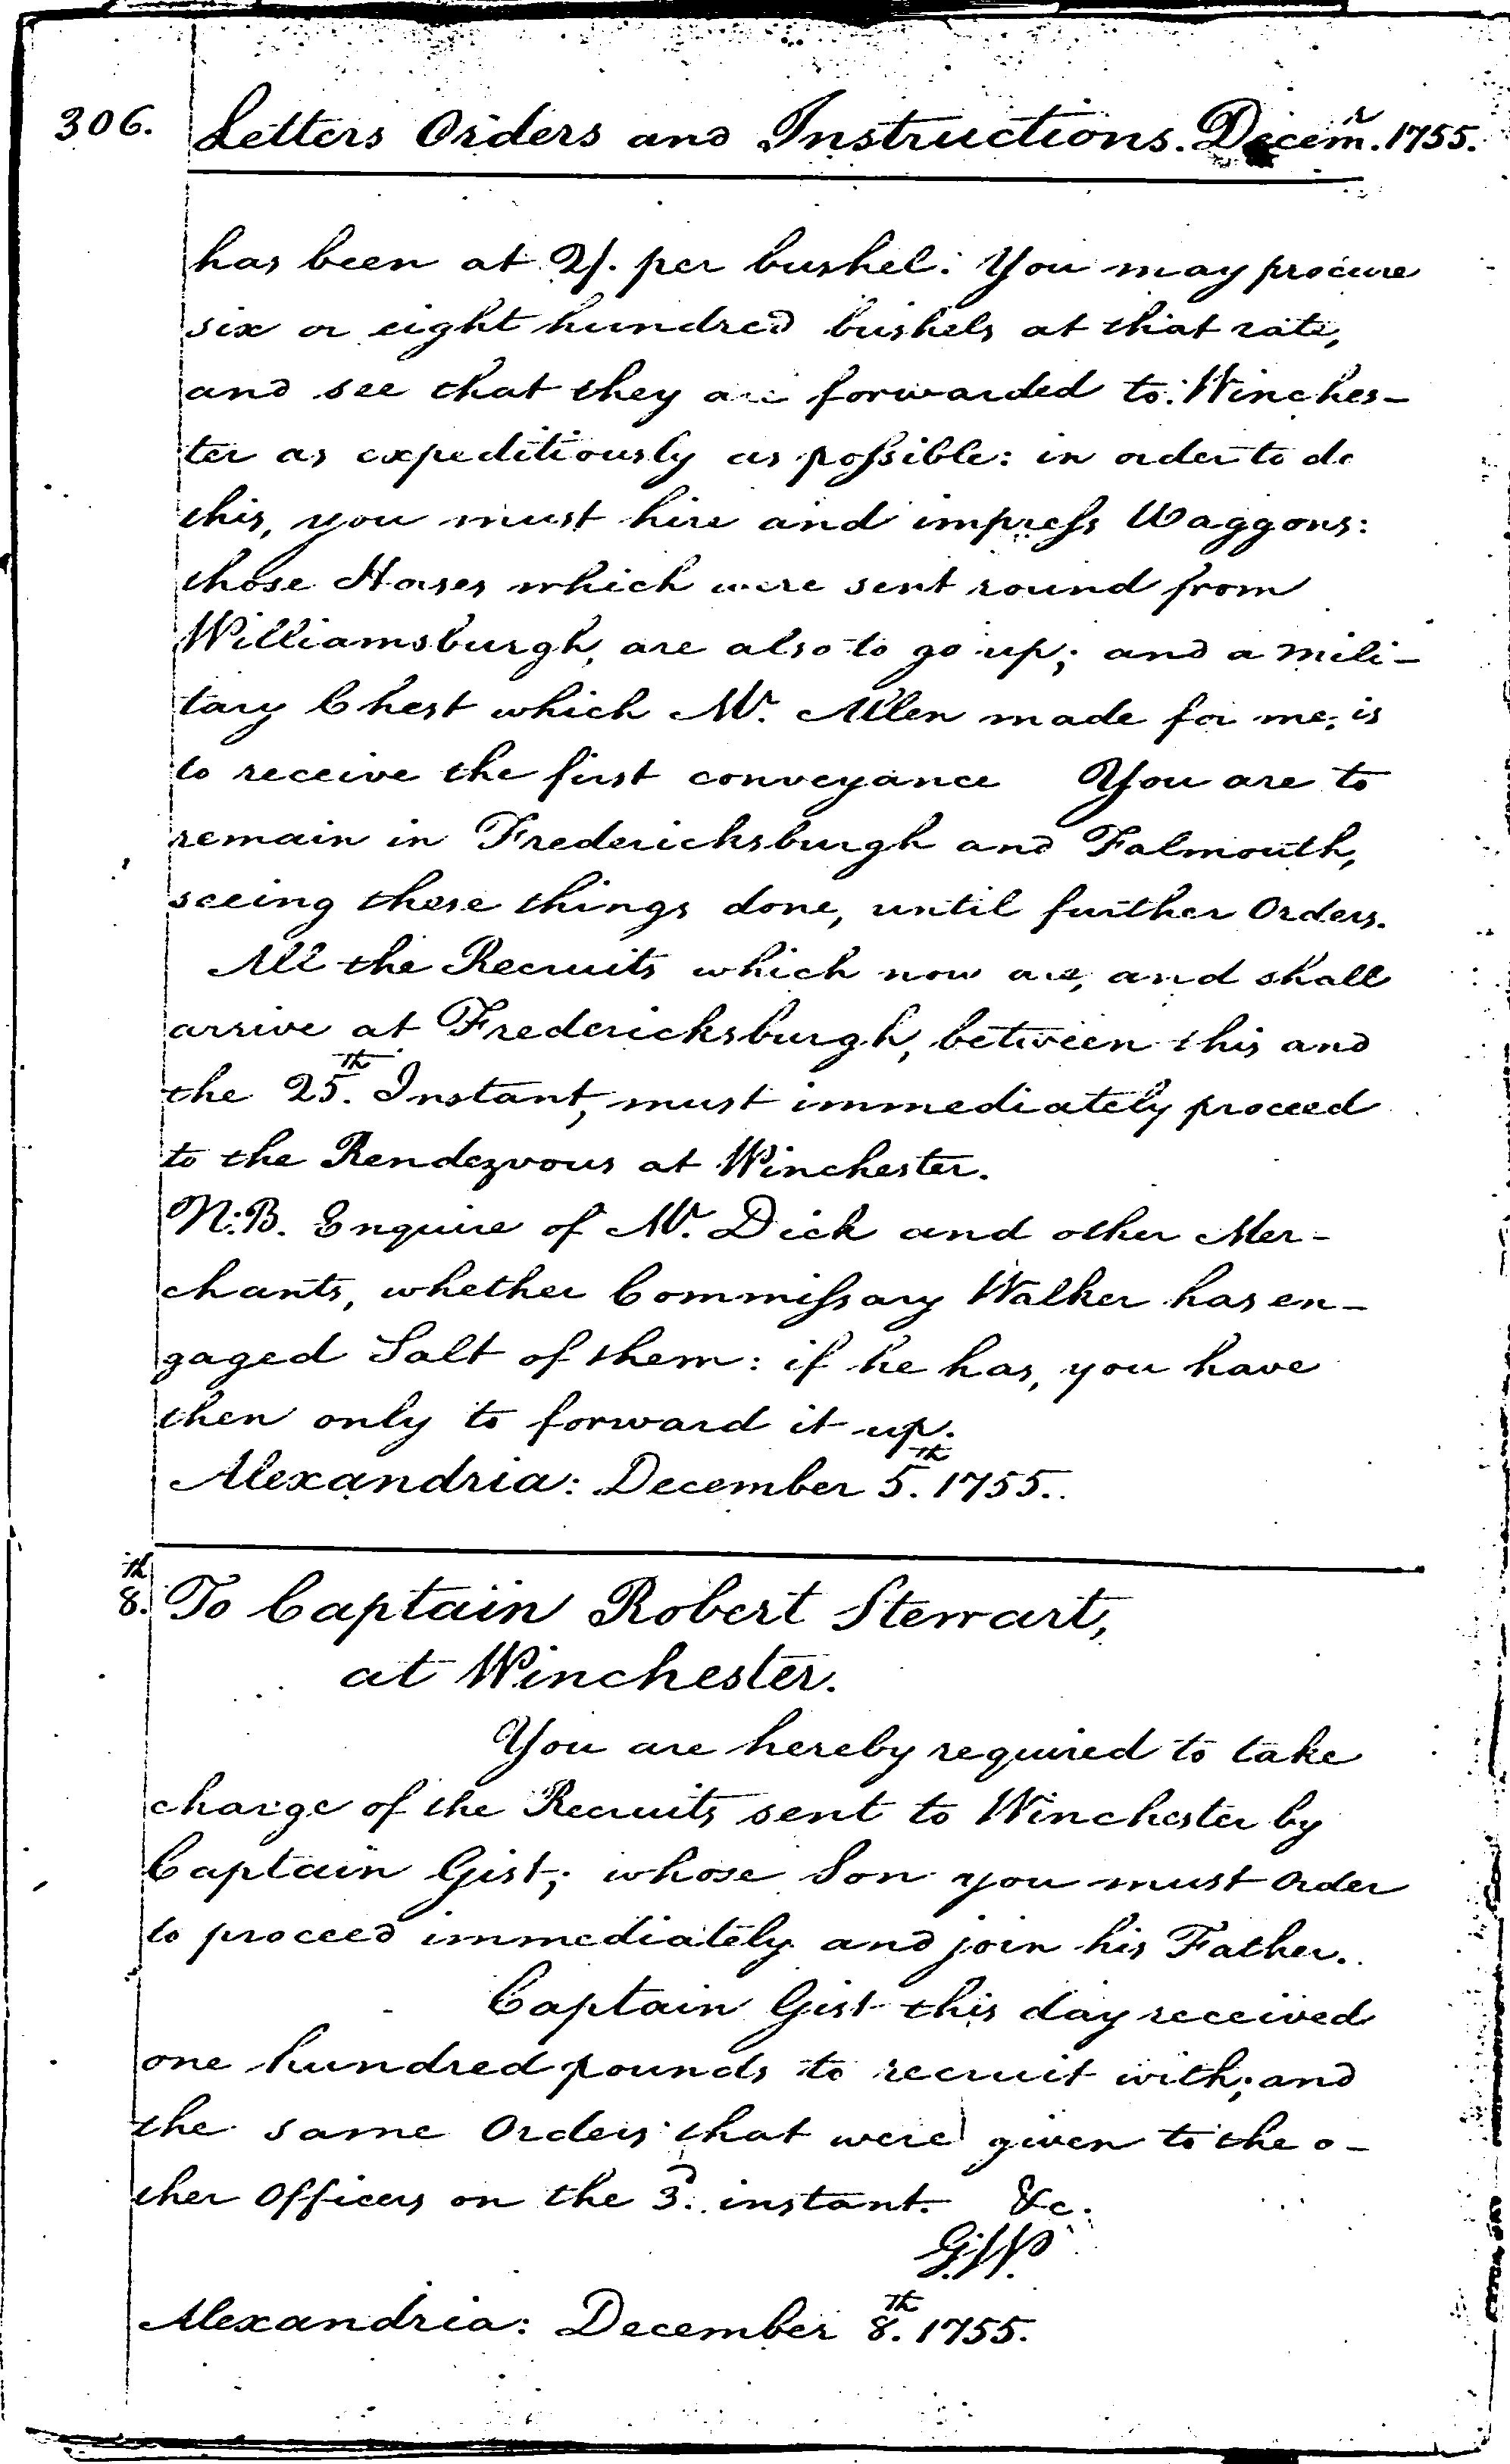 306. Letters Orders and Instructions. Decemr. 1755.
has been at 2/. per bushel: You may procure
six or eight hundred bushels at that rate,
and see that they are forwarded to Winches-
ter as expeditiously as possible: in order to do
this, you must hire and impress Waggons:
those Horses which were sent round from
Williamsburgh, are also to go up; and a mili-
tary Chest which Mr. Allen made for me, is
to receive the first conveyance You are to
remain in Fredericksburgh and Falmouth,
seeing these things done, until further Orders.
All the Recruits which now are, and shall
arrive at Fredericksburgh, between this and
the 25th. Instant, must immediately proceed
to the Rendezvous at Winchester.
N:B. Enquire of Mr. Dick and other Mer-
chants, whether Commissary Walker has en-
gaged Salt of them: if he has, you have
then only to forward it up.
Alexandria: December 5th. 1755.
8th. To Captain Robert Stewart,
at Winchester.
You are hereby required to take
charge of the Recruits sent to Winchester by
Captain Gist; whose Son you must order
to proceed immediately and join his Father.
Captain Gist this day received
one hundred pounds to recruit with; and
the same Orders that were given to the o-
ther Officers on the 3d. instant. &c.
G:W.
Alexandria: December 8th. 1755.